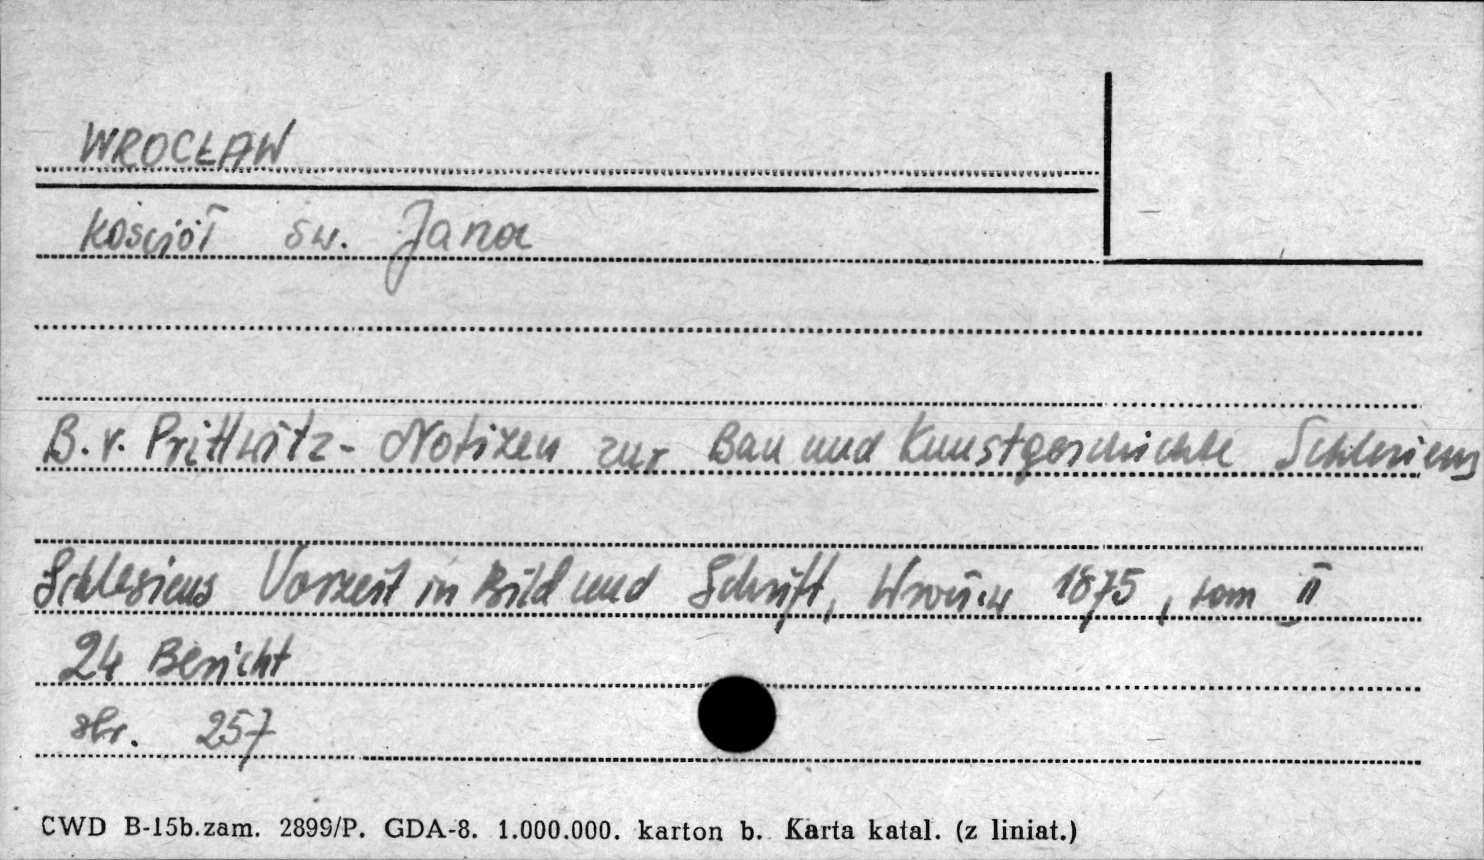 WROCŁAW
kościół św. Jana
B. v. Prittwitz - Notizen zur Bau und Kunstgeschichte Schlesiens
Schlesiens Vorzeit in Bild und Schrift, 1875, tom II
24 Bericht
str. 257
CWD B-15b.zam. 2899/P. GDA-8. 1.000.000. karton b. Karta katal. (z liniat.)